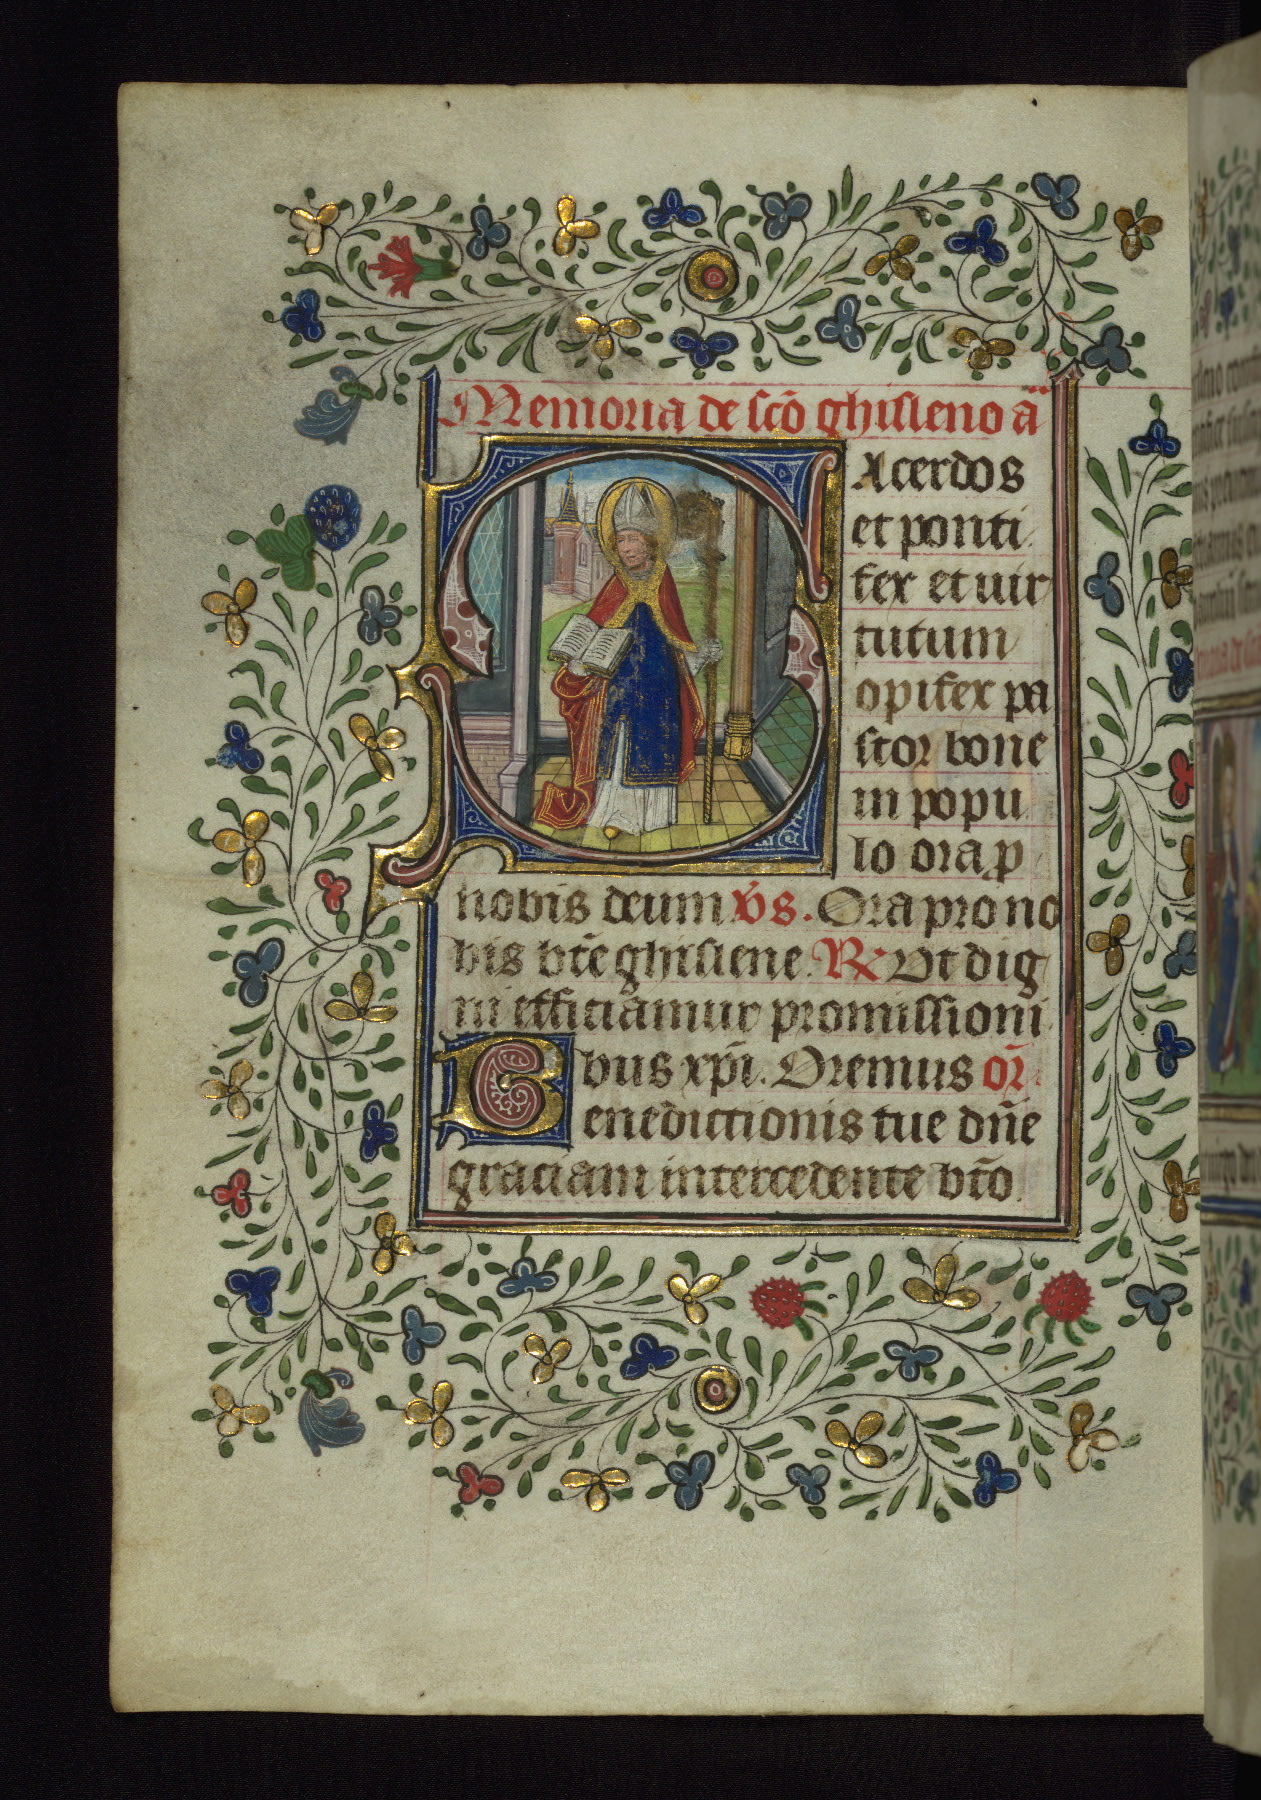 Memoria de sc̄o ghisleno ā
Sacerdos
et ponti
fex et uir
tutum
opifex pa
stor bone
in popu
lo ora p
nobis deum v̄s. Ora pro no
bis bt̄e ghislene. R Vt dig
ni efficiamur promissioni
bus xp̄i. Oremus or̄
Benedictionis tue dn̄e
graciam intercedente bt̄o